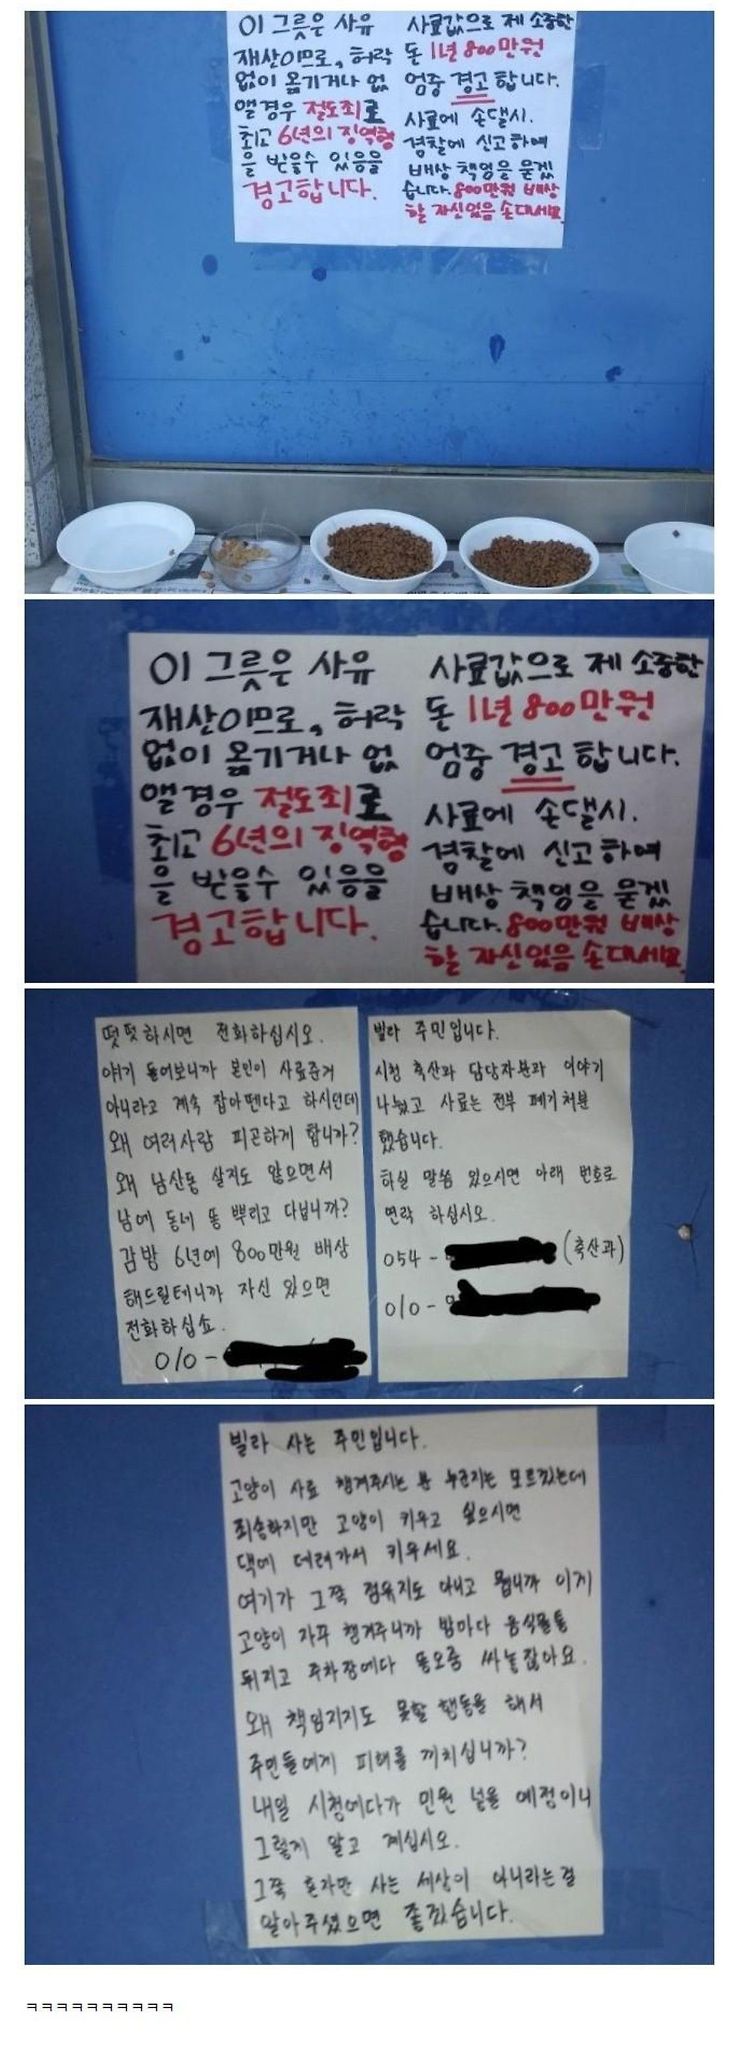 이 그릇은 사유
재산이므로, 허락
없이 옮기거나 없
앨경우 절도죄로
최고 6년의 징역형
을 받을수 있음을
경고합니다.
사료값으로 제 소중한
돈 1년 800만원
엄중 경고합니다.
사료에 손댈시.
경찰에 신고하여
배상 책임을 묻겠
습니다. 800만원 배상
할 자신있음 손대세요
이 그릇은 사유
재산이므로, 허락
없이 옮기거나 없
앨경우 절도죄로
최고 6년의 징역형
을 받을수 있음을
경고합니다.
사료값으로 제 소중한
돈 1년 800만원
엄중 경고합니다.
사료에 손댈시.
경찰에 신고하여
배상 책임을 묻겠
습니다. 800만원 배상
할 자신있음 손대세요
떳떳하시면 전화하십시오.
얘기 들어보니까 본인이 사료준거
아니라고 계속 잡아뗀다고 하시던데
왜 여러사람 피곤하게 합니까?
왜 남산동 살지도 않으면서
남에 동네 똥 뿌리고 다닙니까?
감방 6년에 800만원 배상
해드릴테니까 자신 있으면
전화하십쇼.
010-
빌라 주민입니다.
시청 축산과 담당자분과 이야기
나눴고 사료는 전부 폐기처분
했습니다.
하실 말씀 있으시면 아래 번호로
연락 하십시오.
054- (축산과)
010-
빌라 사는 주민입니다.
고양이 사료 챙겨주시는 분 누군지는 모르겠는데
죄송하지만 고양이 키우고 싶으시면
댁에 데려가서 키우세요.
여기가 그쪽 점유지도 아니고 뭡니까 이게
고양이 자꾸 챙겨주니까 밤마다 음식물통
뒤지고 주차장에다 똥오줌 싸놓잖아요.
왜 책임지지도 못할 행동을 해서
주민들에게 피해를 끼치십니까?
내일 시청에다가 민원 넣을 예정이니
그렇게 알고 계십시오.
그쪽 혼자만 사는 세상이 아니라는걸
알아주셨으면 좋겠습니다.
ㅋㅋㅋㅋㅋㅋㅋㅋㅋㅋ